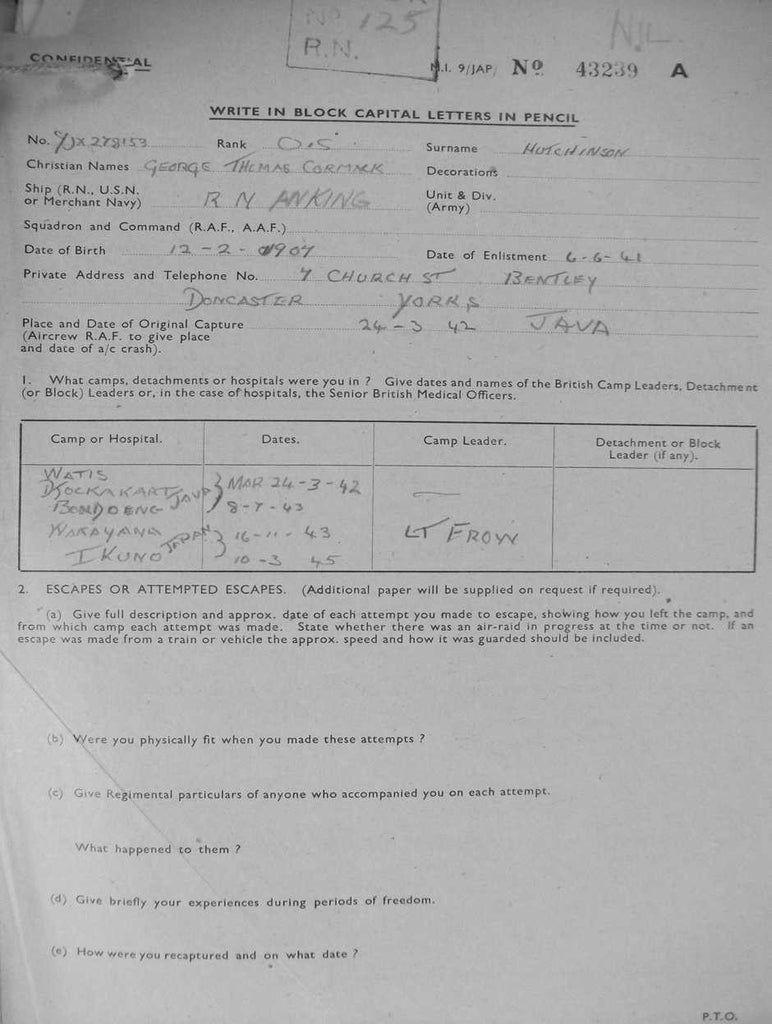 No 125
R.N.
NIL
CONFIDENTIAL
M.I. 9/JAP/ No 43239 A
WRITE IN BLOCK CAPITAL LETTERS IN PENCIL
No. JX278153 Rank O.S Surname HUTCHINSON
Christian Names GEORGE THOMAS CORMACK Decorations
Ship (R.N., U.S.N. or Merchant Navy) R N ANKING Unit & Div. (Army)
Squadron and Command (R.A.F., A.A.F.)
Date of Birth 12-2-1907 Date of Enlistment 6-6-41
Private Address and Telephone No. 7 CHURCH ST BENTLEY
DONCASTER YORKS
Place and Date of Original Capture 24-3 42 JAVA
(Aircrew R.A.F. to give place
and date of a/c crash).
1. What camps, detachments or hospitals were you in ? Give dates and names of the British Camp Leaders, Detachment
(or Block) Leaders or, in the case of hospitals, the Senior British Medical Officers.
Camp or Hospital. Dates. Camp Leader. Detachment or Block Leader (if any).
WATIS
DJOCKAKARTA JAVA } MAR 24-3-42
BONDOENG 8-7-43
WAKAYAMA JAPAN } 16-11-43 LT FROW
IKUNO 10-3 45
2. ESCAPES OR ATTEMPTED ESCAPES. (Additional paper will be supplied on request if required).
(a) Give full description and approx. date of each attempt you made to escape, showing how you left the camp, and
from which camp each attempt was made. State whether there was an air-raid in progress at the time or not. If an
escape was made from a train or vehicle the approx. speed and how it was guarded should be included.
(b) Were you physically fit when you made these attempts ?
(c) Give Regimental particulars of anyone who accompanied you on each attempt.
What happened to them ?
(d) Give briefly your experiences during periods of freedom.
(e) How were you recaptured and on what date ?
P.T.O.